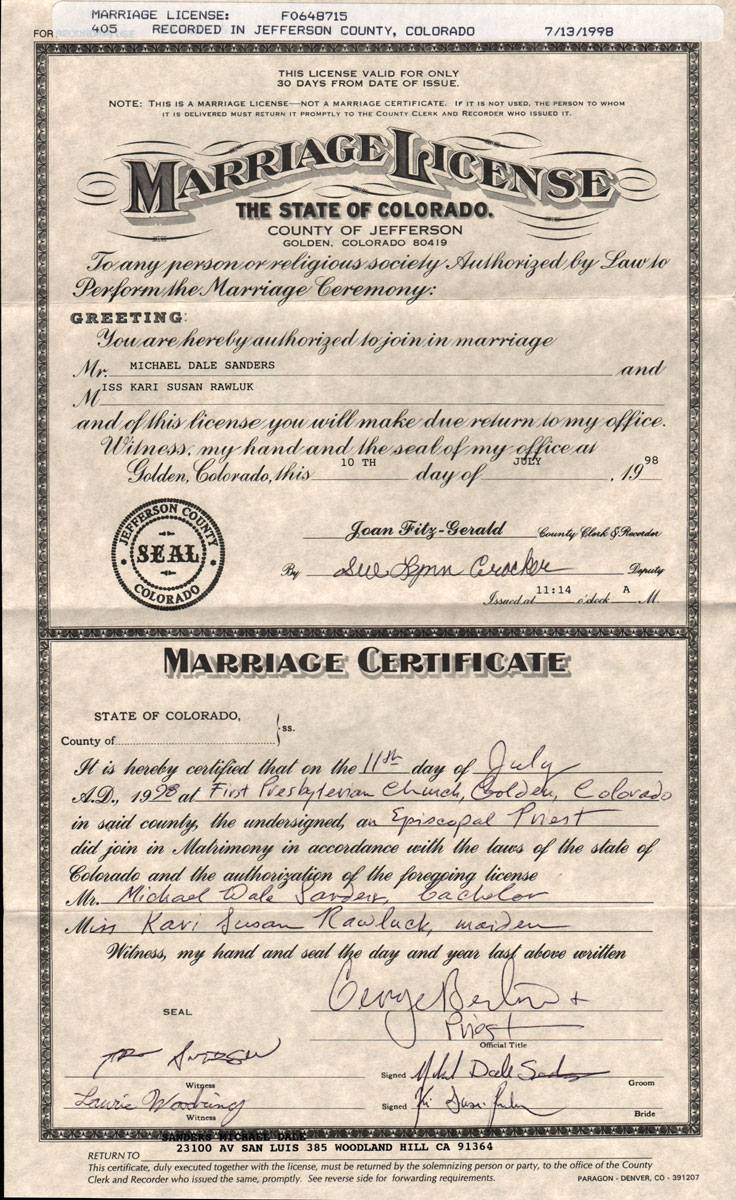 MARRIAGE LICENSE: F0648715
405 RECORDED IN JEFFERSON COUNTY, COLORADO 7/13/1998
FOR
THIS LICENSE VALID FOR ONLY
30 DAYS FROM DATE OF ISSUE.
NOTE: THIS IS A MARRIAGE LICENSE—NOT A MARRIAGE CERTIFICATE. IF IT IS NOT USED, THE PERSON TO WHOM
IT IS DELIVERED MUST RETURN IT PROMPTLY TO THE COUNTY CLERK AND RECORDER WHO ISSUED IT.
MARRIAGE LICENSE
THE STATE OF COLORADO.
COUNTY OF JEFFERSON
GOLDEN, COLORADO 80419
To any person or religious society Authorized by Law to
Perform the Marriage Ceremony:
GREETING:
You are hereby authorized to join in marriage
Mr. MICHAEL DALE SANDERS and
MISS KARI SUSAN RAWLUK
and of this license you will make due return to my office.
Witness, my hand and the seal of my office at
Golden, Colorado, this 10 TH day of JULY , 19 98
JEFFERSON COUNTY
SEAL
COLORADO
Joan Fitz-Gerald County Clerk & Recorder
By Sue Lynn Crocker Deputy
Issued at 11:14 o'clock A M.
MARRIAGE CERTIFICATE
STATE OF COLORADO,
County of ss.
It is hereby certified that on the 11th day of July
A.D., 1998 at First Presbyterian Church, Golden, Colorado
in said county, the undersigned, an Episcopal Priest
did join in Matrimony in accordance with the laws of the state of
Colorado and the authorization of the foregoing license
Mr. Michael Dale Sanders, bachelor
Miss Kari Susan Rawluck, maiden
Witness, my hand and seal the day and year last above written
SEAL
George +
Priest
Official Title
Witness
Signed Dale Groom
Laurie
Witness
Signed Bride
SANDERS MICHAEL DALE
23100 AV SAN LUIS 385 WOODLAND HILL CA 91364
RETURN TO
This certificate, duly executed together with the license, must be returned by the solemnizing person or party, to the office of the County
Clerk and Recorder who issued the same, promptly. See reverse side for forwarding requirements. PARAGON - DENVER, CO - 391207